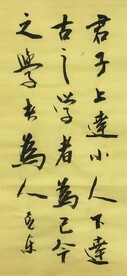 君子上達小人下達
古之学者為己今
之學者為人